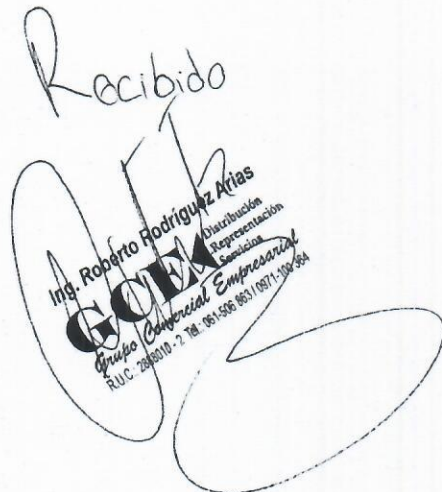 Recibido
Ing. Roberto Rodríguez Arias
GCE
Distribución
Representación
Servicios
Grupo Comercial Empresarial
R.U.C.: - 2 Tel.: 061-506 863 / 0971-